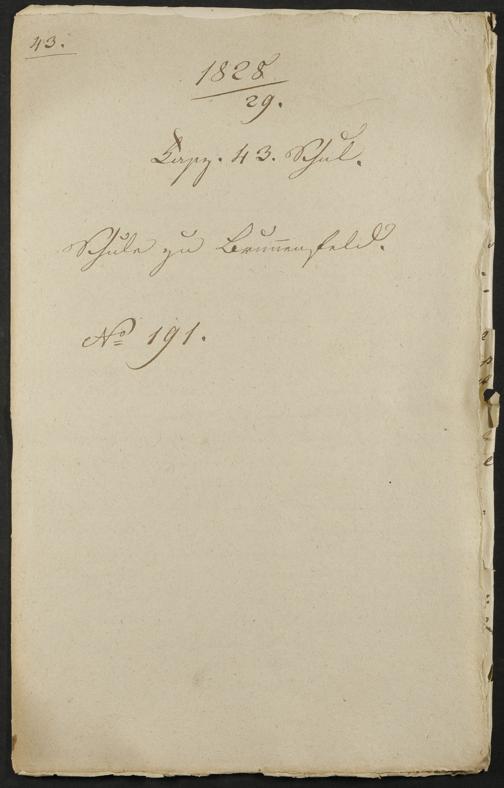 43.
1828
29.
Lapz. 43. Schul.
Schule zu Brunnensfeld.
No 191.